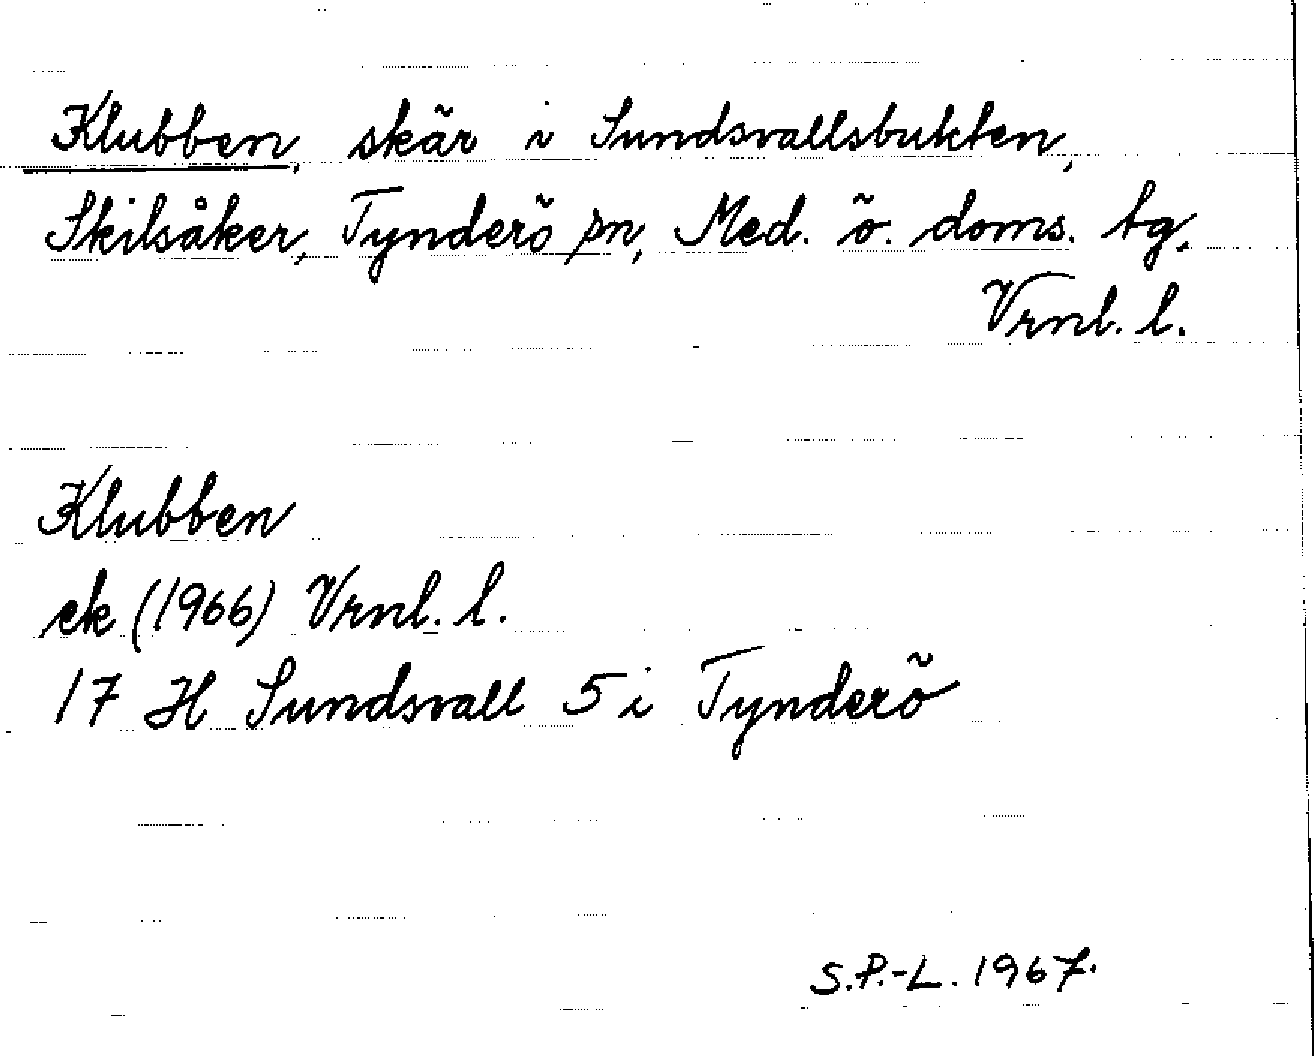 Klubben, skär i Sundsvallsbukten,
Skilsåker, Tynderö sn, Med. ö. doms. tg.
Vrnl. l.
Klubben
ek (1966) Vrnl. l.
17 H Sundsvall 5 i Tynderö
S.P.-L. 1967.